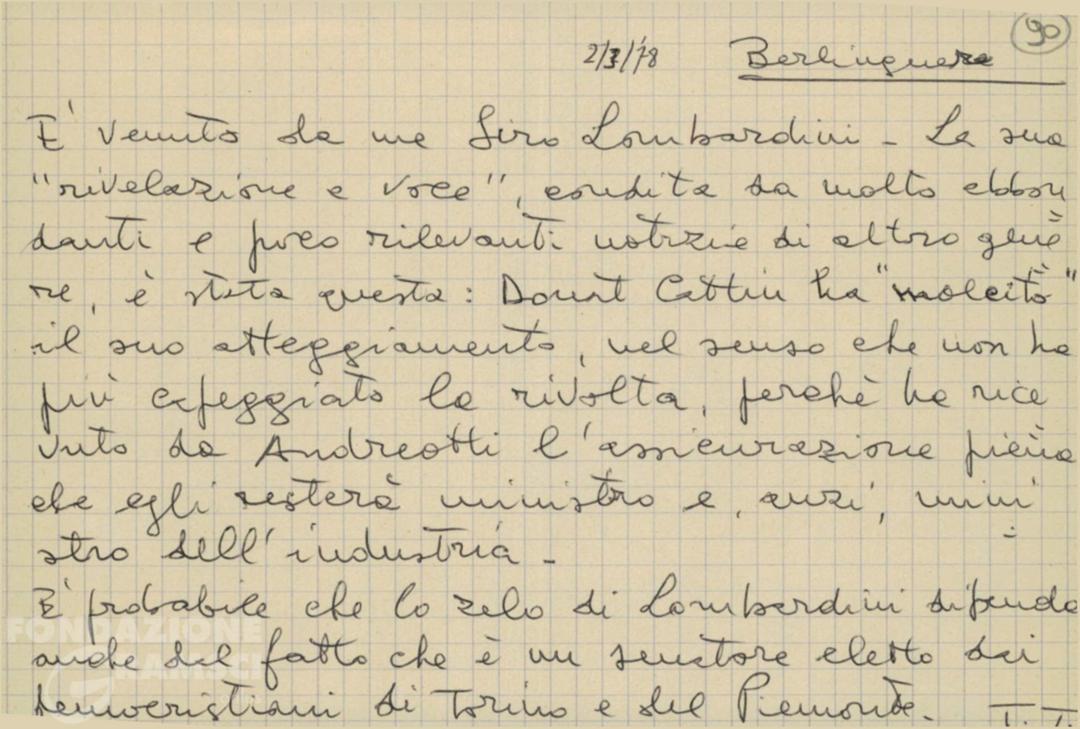 90
2/3/78 Berlinguer
E' venuto da me Siro Lombardini - La sua
"rivelazione e voce", condita da molto abbon
danti e poco rilevanti notizie di altro gene
re, è stata questa: Donat Cattin ha "molcito"
il suo atteggiamento, nel senso che non ha
più capeggiato la rivolta, perché ha rice
vuto da Andreotti l'assicurazione piena
che egli resterà ministro e, anzi, mini
stro dell'industria -
E' probabile che lo zelo di Lombardini dipenda
anche dal fatto che è un senatore eletto dai
democristiani di Torino e del Piemonte. T. T.
FONDAZIONE
GRAMSCI